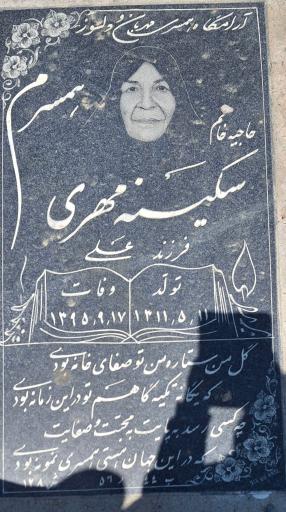 آرامگاه همسری مهربان و دلسوز
همسرم
حاجیه خانم
سکینه مهری
فرزند علی
تولد وفات
۱۳۱۱٫۵٫۱۱ ۱۳۹۵٫۹٫۱۷
گل من ستاره من تو صفای خانه بودی
که یگانه تکیه گاهم تو در این زمانه بودی
چه کسی رسد به پایت به محبت و صفایت
که در این جهان هستی همسری نمونه بودی